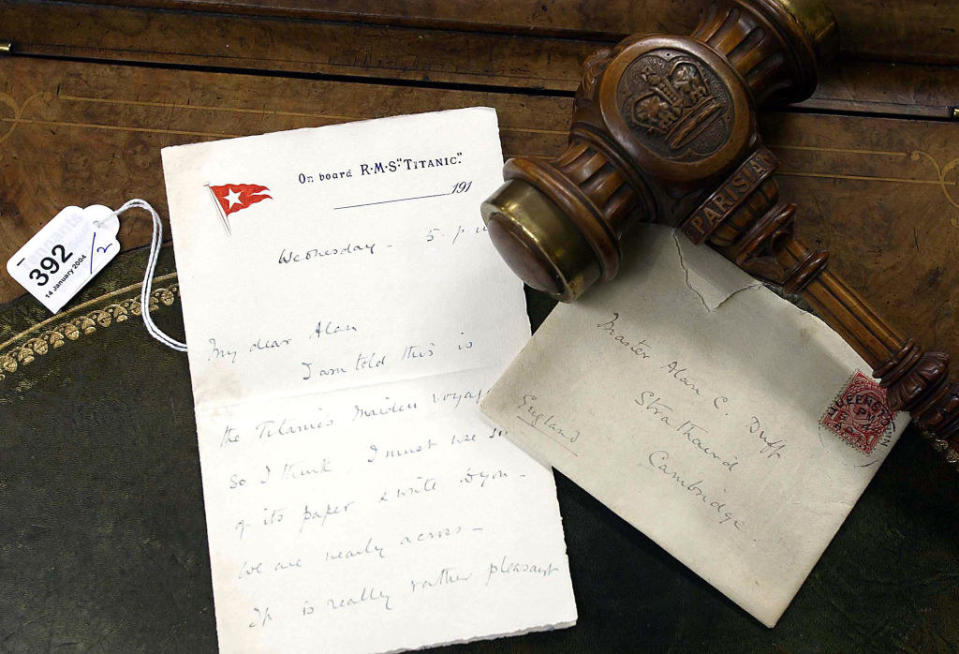 On board R.M.S. "TITANIC."
191
Wednesday - 5. p
My dear Alan
I am told this is
the Titanic's Maiden voyag
So I think I must use
of its paper & write to you -
We are nearly across -
It is really rather pleasant
392
14 January 2004
1/2
PARISIAN
Master Alan C. Duff
Strathaird
Cambridge
England
QUEENSTOWN